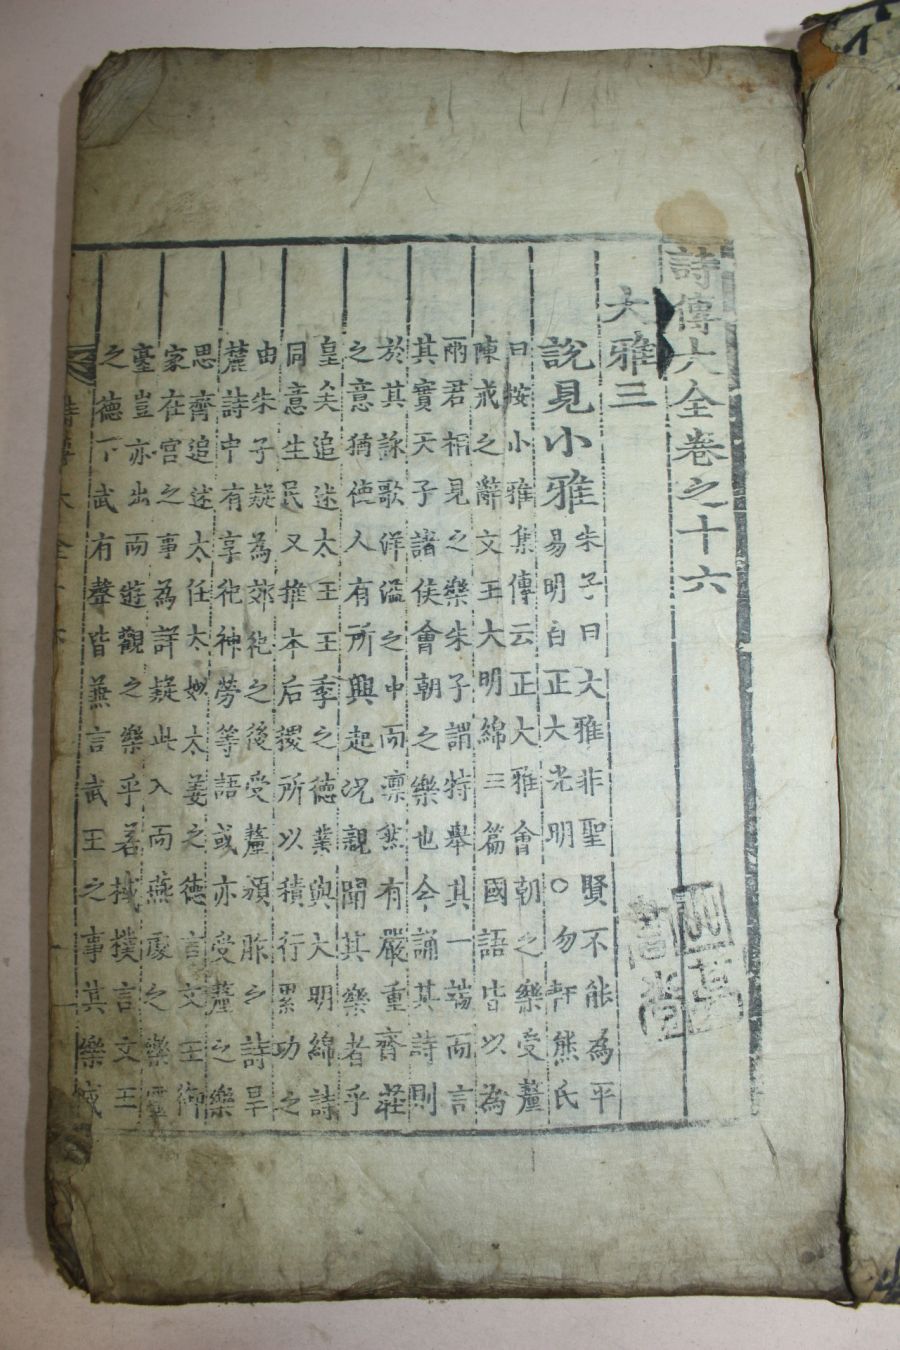 詩傳大全卷之十六
大雅三
說見小雅
朱子曰大雅非聖賢不能為平
易明白正大光明○勿軒熊氏
曰按小雅集傳云正大雅會朝之樂受釐
陳戒之辭文王大明綿三篇國語皆以為
兩君相見之樂朱子謂特舉其一端而言
其實天子諸侯會朝之樂也今誦其詩則
於其詠歌洋溢之中而凜然有嚴重齊莊
之意猶使人有所興起况親聞其樂者乎
皇矣追述太王王季之德業與大明綿詩
同意生民又推本后稷所以積行累功之
由朱子疑為郊祀之後受釐頒胙之詩旱
麓詩中有享祀神勞等語或亦受釐之樂
思齊追述太任太姒太姜之德言文王御
家在宮之事為詳疑此入而燕處之樂靈
臺豈亦出而遊觀之樂乎若棫樸言文王
之德下武有聲皆兼言武王之事其樂或
詩傳大全十六